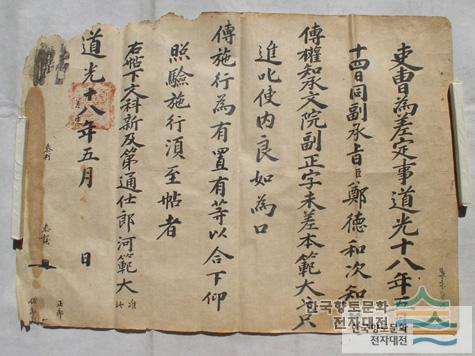 吏曹爲差定事道光十八年五
十四日同副承旨臣鄭德和次知
傳權知承文院副正字未差本範大只
進叱使內良如爲口
傳施行爲有置有等以合下仰
照驗施行須至帖者
右帖下文科新及第通仕郎河範大 准此
道光十八年五月 日
參判
參議
正郎
한국향토문화
전자대전